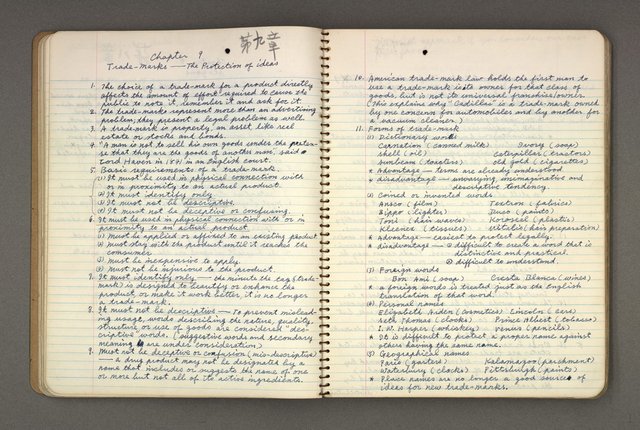 第九章
Chapter 9
Trade-Marks — The Protection of ideas
1. The choice of a trade-mark for a product directly
affects the amount of effort required to cause the
public to note it, remember it and ask for it.
2. The trade-marks represent more than an advertising
problem; they present a legal problem as well.
3. A trade-mark is property, an asset like real
estate or stocks and bonds.
4. "A man is not to sell his own goods under the preten-
se that they are the goods of another man", said
Lord Haven in 1841 in an English court.
5. Basic requirements of a trade-mark.
(1) It must be used in physical connection with
or in proximity to an actual product.
(2) It must identify only.
(3) It must not be descriptive.
(4) It must not be deceptive or confusing.
6. It must be used in physical connection with or in
proximity to an actual product
(1) Must be applied or affixed to an existing product
(2) Must stay with the product until it reaches the
consumer
(3) Must be inexpensive to apply
(4) Must not be injurious to the product.
7. It must identify only — the minute the tag (trade-
mark) is designed to beautify or enhance the
product, or make it work better, it is no longer
a trade-mark.
8. It must not be descriptive — To prevent mislead-
ing usage, words describing the nature, quality,
structure or use of goods are considered "des-
criptive" words. (Suggestive words and secondary
meaning are under consideration)
9. Must not be deceptive or confusion (mis-descriptive)
— a drug product may not be designated by a
name that includes or suggests the name of one
or more but not all of its active ingredients.
10. American trade-mark law holds the first man to
use a trade-mark is its owner for that class of
goods, but is not its universal franchise/owner.
(This explains why "Cadillac" is a trade-mark owned
by one concern for automobiles and by another for
a vacuum cleaner.)
11. Forms of trade-mark
(1) Dictionary words
Carnation (canned milk) Savory (soap)
Shell (oil) Caterpillar (tractors)
Sunbeam (toasters) old gold (cigarettes)
* Advantage — terms are already understood
* disadvantage — unimaginative and
descriptive tendency
(2) Coined or invented words
Ansco (film) Textron (fabrics)
Zippo (lighter) Duco (paints)
Toni (hair waves) Koroseal (plastic)
Kleenex (tissues) Vitalis (hair preparation)
* Advantage — easiest to protect legally.
* disadvantage — ① difficult to create a word that is
distinctive and practical.
② difficult to understand.
(3) Foreign words
Bon Ami (soap) Cresta Blanca (wines)
* a foreign word is treated just as the English
translation of that word
(4) Personal names
Elizabeth Arden (cosmetics) Lincoln (cars)
Seth Thomas (clocks) Prince Albert (tobacco)
I. W. Harper (whiskey) Venus (pencils)
* It is difficult to protect a proper name against
others having the same name.
(5) Geographical names
Paris (garters) Kalamazoo (parchment)
Waterbury (clocks) Pittsburgh (paints)
* Place names are no longer a good source of
ideas for new trade-marks.